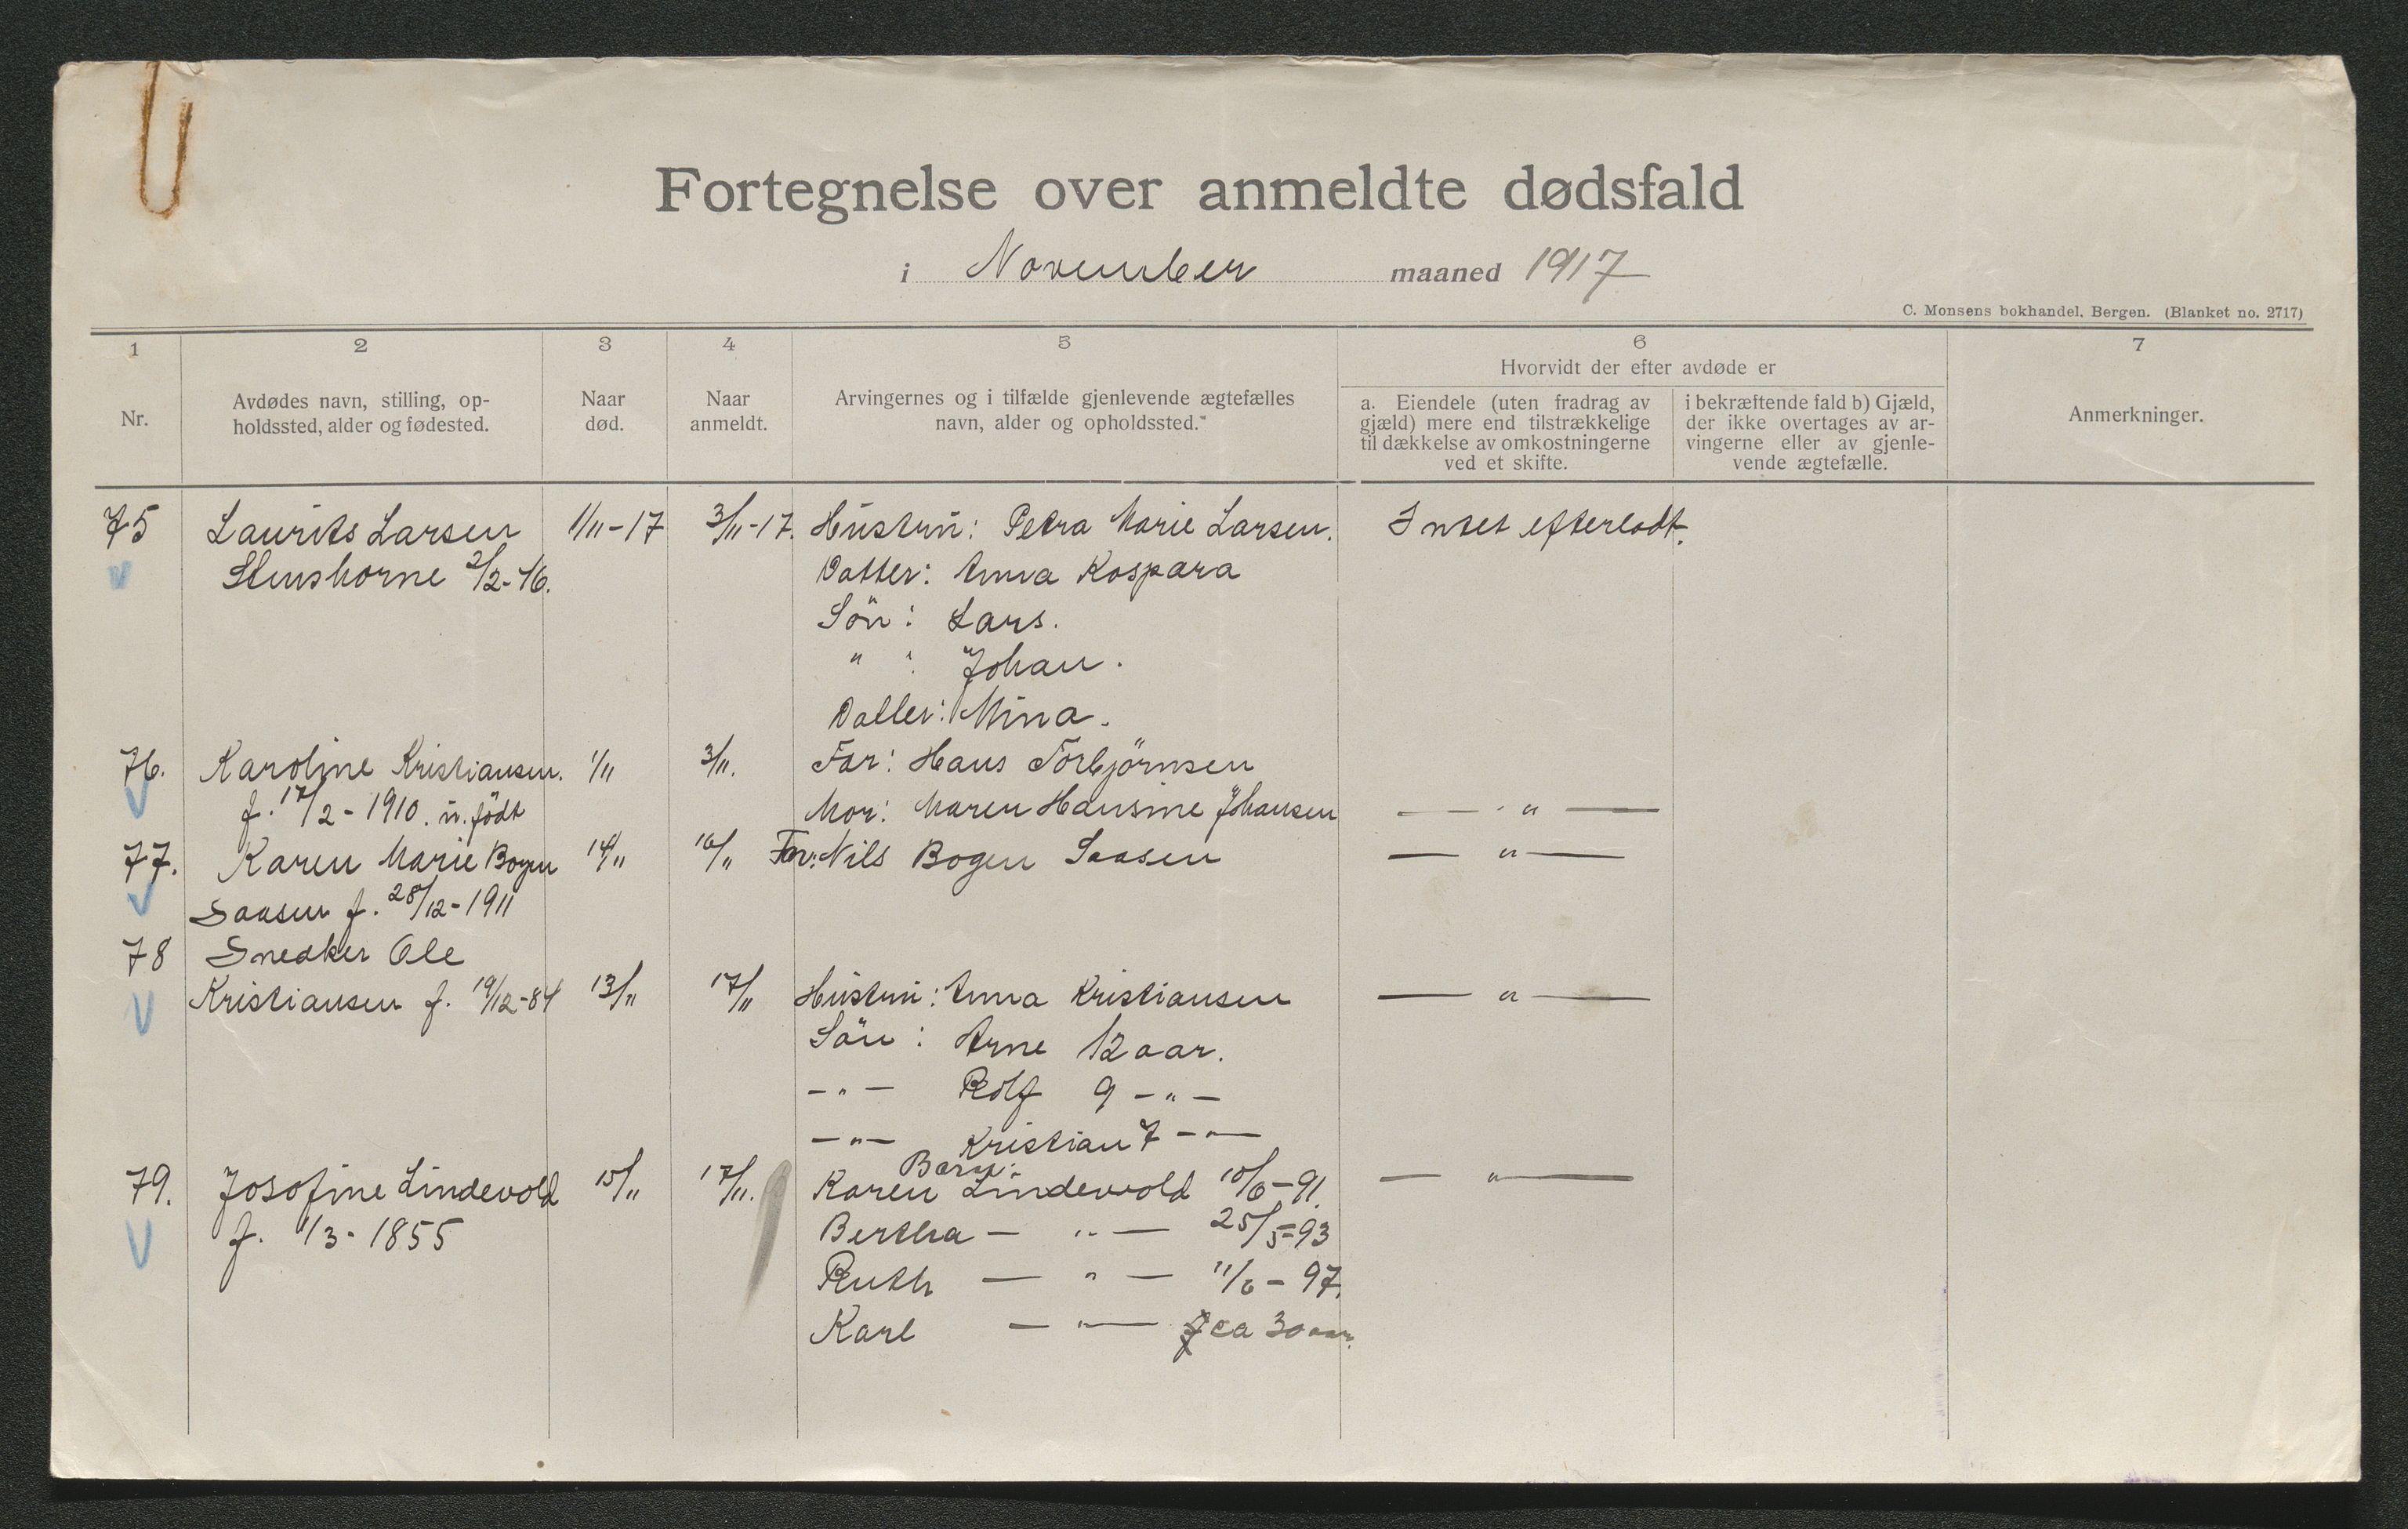 Fortegnelse over anmeldte dødsfald
i November maaned 1917
C. Monsens bokhandel. Bergen. (Blanket no. 2717)
1 2 3 4 5 6 7
Hvorvidt der efter avdøde er
Nr.
Avdødes navn, stilling, op-
holdssted, alder og fødested.
Naar
død.
Naar
anmeldt.
Arvingernes og i tilfælde gjenlevende ægtefælles
navn, alder og opholdssted."
a. Eiendele (uten fradrag av
gjæld) mere end tilstrækkelige
til dækkelse av omkostningerne
ved et skifte.
i bekræftende fald b) Gjæld,
der ikke overtages av ar-
vingerne eller av gjenle-
vende ægtefælle.
Anmerkninger.
75 Laurits Larsen 1/11-17 3/11-17. Hustru: Petra Marie Larsen. Intet efterladt.
Stenshorne 2/2-76. Datter: Anna Kaspara
Sön: Lars.
" : Johan.
Datter: Mina.
76. Karoline Kristiansen. 1/11 3/11. Far: Hans Torbjörnsen
f. 17/2-1910. u. födt Mor: Maren Hansine Johansen — " —
77. Karen Marie Bogen 14/11 16/11 Far: Nils Bogen Saasen — " —
Saasen f. 28/12-1911
78 Snedker Ole
Kristiansen f. 19/12-84 13/11 17/11 Hustru: Anna Kristiansen — " —
Sön: Arne 12 aar.
-"- Rolf 9 -"-
-"- Kristian 7 -"-
Barn:
79. Josofine Lindevold 15/11 17/11. Karen Lindevold 10/6-91. — " —
f. 1/3-1855 Bertha — " — 25/5-93
Ruth — " — 11/6-97.
Karl — " — ca 30 aar.